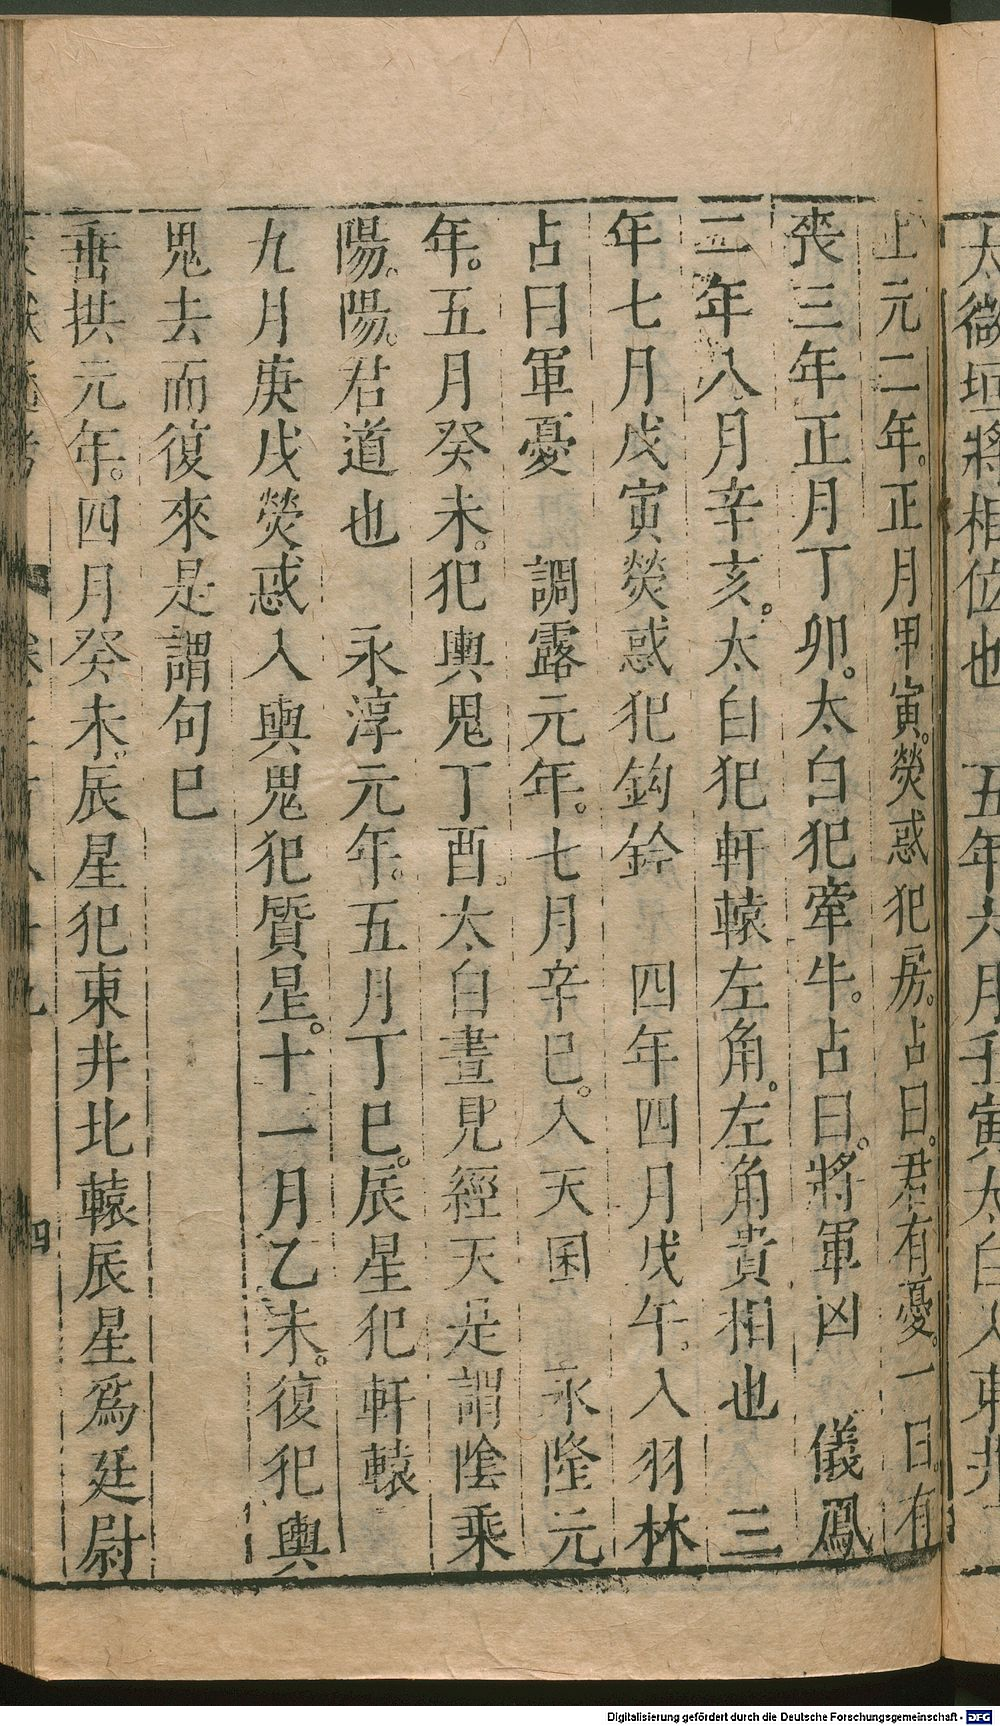 太微垣將相位也　五年六月壬寅太白入東井
上元二年。正月甲寅。熒惑犯房。占曰。君有憂。一曰。有
喪三年正月丁卯。太白犯牽牛。占曰。將軍凶　儀鳳
二年八月辛亥。太白犯軒轅左角。左角貴相也　三
年七月戊寅熒惑犯鈎鈐　四年四月戊午。入羽林
占曰軍憂　調露元年。七月辛巳。入天囷　永隆元
年。五月癸未。犯輿鬼丁酉。太白晝見經天是謂陰乘
陽。陽。君道也　永淳元年。五月丁巳。辰星犯軒轅
九月庚戌熒惑入輿鬼犯質星。十一月乙未。復犯輿
鬼去而復來是謂句巳
垂拱元年。四月癸未。辰星犯東井北轅辰星爲廷尉
四
Digitalisierung gefördert durch die Deutsche Forschungsgemeinschaft - DFG